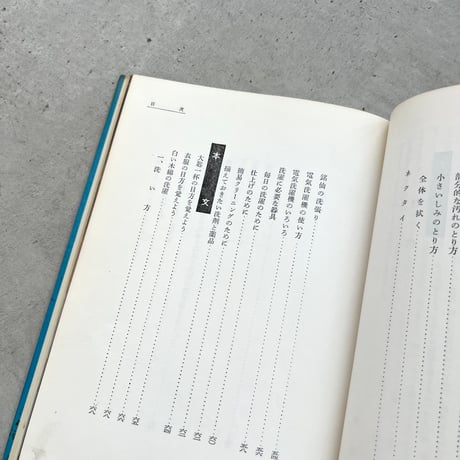 部分的な汚れのとり方
小さいしみのとり方
全体を拭く
ネクタイ
目次
銘仙の洗張り
電気洗濯機の使い方
電気洗濯機のいろいろ
洗濯に必要な器具
毎日の洗濯のために
仕上げのために
簡易クリーニングのために
揃えておきたい洗剤と薬品
本文
大匙一杯の目方を覚えよう
衣服の目方を覚えよう
白い木綿の洗濯
一、洗い方